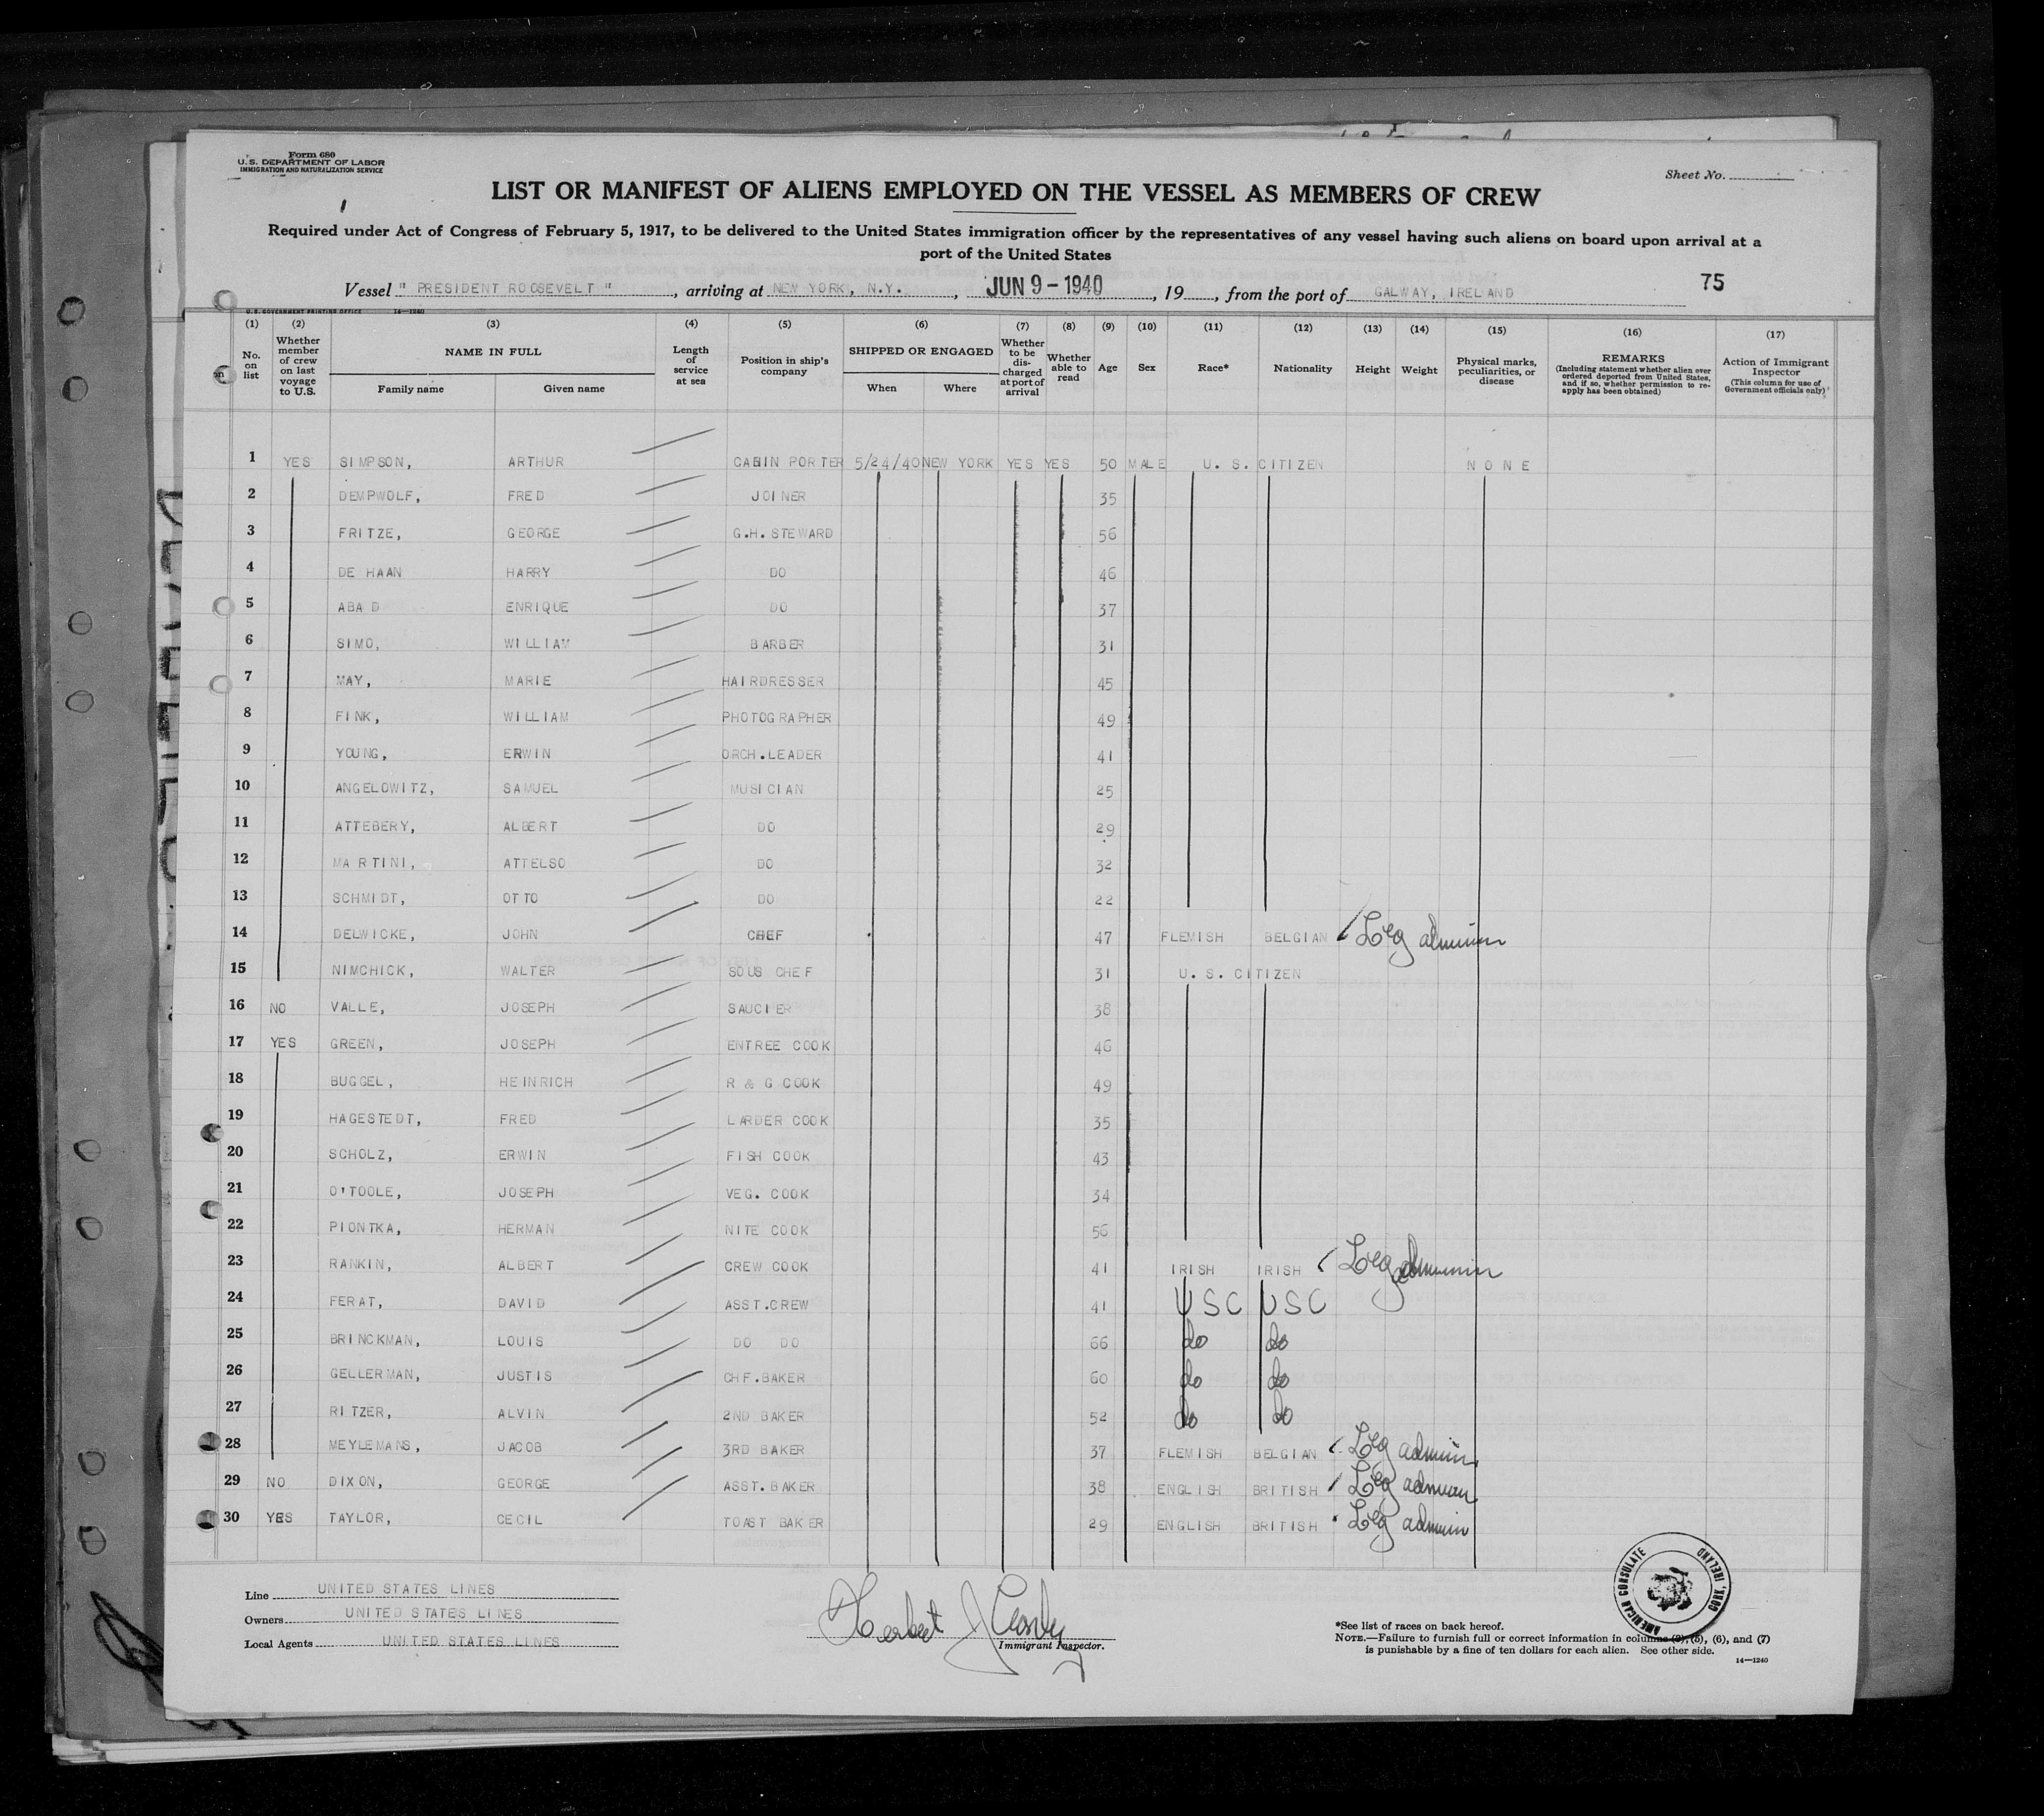 Form 680
U. S. DEPARTMENT OF LABOR
IMMIGRATION AND NATURALIZATION SERVICE
Sheet No.
LIST OR MANIFEST OF ALIENS EMPLOYED ON THE VESSEL AS MEMBERS OF CREW
Required under Act of Congress of February 5, 1917, to be delivered to the United States immigration officer by the representatives of any vessel having such aliens on board upon arrival at a
port of the United States
Vessel " PRESIDENT ROOSEVELT ", arriving at NEW YORK, N.Y., JUN 9 - 1940, 19, from the port of GALWAY, IRELAND 75
U. S. GOVERNMENT PRINTING OFFICE 14—1240
(1) (2) (3) (4) (5) (6) (7) (8) (9) (10) (11) (12) (13) (14) (15) (16) (17)
No. on list
Whether member of crew on last voyage to U.S.
NAME IN FULL
Family name Given name
Length of service at sea
Position in ship's company
SHIPPED OR ENGAGED
When Where
Whether to be discharged at port of arrival
Whether able to read
Age
Sex
Race*
Nationality
Height
Weight
Physical marks, peculiarities, or disease
REMARKS
(Including statement whether alien ever ordered deported from United States, and if so, whether permission to reapply has been obtained)
Action of Immigrant Inspector
(This column for use of Government officials only)
1 YES SIMPSON, ARTHUR CABIN PORTER 5/24/40 NEW YORK YES YES 50 MALE U. S. CITIZEN NONE
2 DEMPWOLF, FRED JOINER 35
3 FRITZE, GEORGE G.H. STEWARD 56
4 DE HAAN HARRY DO 46
5 ABAD ENRIQUE DO 37
6 SIMO, WILLIAM BARBER 31
7 MAY, MARIE HAIRDRESSER 45
8 FINK, WILLIAM PHOTOGRAPHER 49
9 YOUNG, ERWIN ORCH.LEADER 41
10 ANGELOWITZ, SAMUEL MUSICIAN 25
11 ATTEBERY, ALBERT DO 29
12 MARTINI, ATTELSO DO 32
13 SCHMIDT, OTTO DO 22
14 DELWICKE, JOHN CHEF 47 FLEMISH BELGIAN Leg
15 NIMCHICK, WALTER SOUS CHEF 31 U. S. CITIZEN
16 NO VALLE, JOSEPH SAUCIER 38
17 YES GREEN, JOSEPH ENTREE COOK 46
18 BUGGEL, HEINRICH R & G COOK 49
19 HAGESTEDT, FRED LARDER COOK 35
20 SCHOLZ, ERWIN FISH COOK 43
21 O'TOOLE, JOSEPH VEG. COOK 34
22 PIONTKA, HERMAN NITE COOK 56
23 RANKIN, ALBERT CREW COOK 41 IRISH IRISH Leg
24 FERAT, DAVID ASST.CREW 41 USC USC
25 BRINCKMAN, LOUIS DO DO 66 do do
26 GELLERMAN, JUSTIS CHF.BAKER 60 do do
27 RITZER, ALVIN 2ND BAKER 52 do do
28 MEYLEMANS, JACOB 3RD BAKER 37 FLEMISH BELGIAN Leg
29 NO DIXON, GEORGE ASST.BAKER 38 ENGLISH BRITISH Leg
30 YES TAYLOR, CECIL TOAST BAKER 29 ENGLISH BRITISH Leg
Line UNITED STATES LINES
Owners UNITED STATES LINES
Local Agents UNITED STATES LINES
Herbert J
Immigrant Inspector.
AMERICAN CONSULATE CORK, IRELAND
*See list of races on back hereof.
NOTE.—Failure to furnish full or correct information in columns (3), (5), (6), and (7)
is punishable by a fine of ten dollars for each alien. See other side.
14—1240